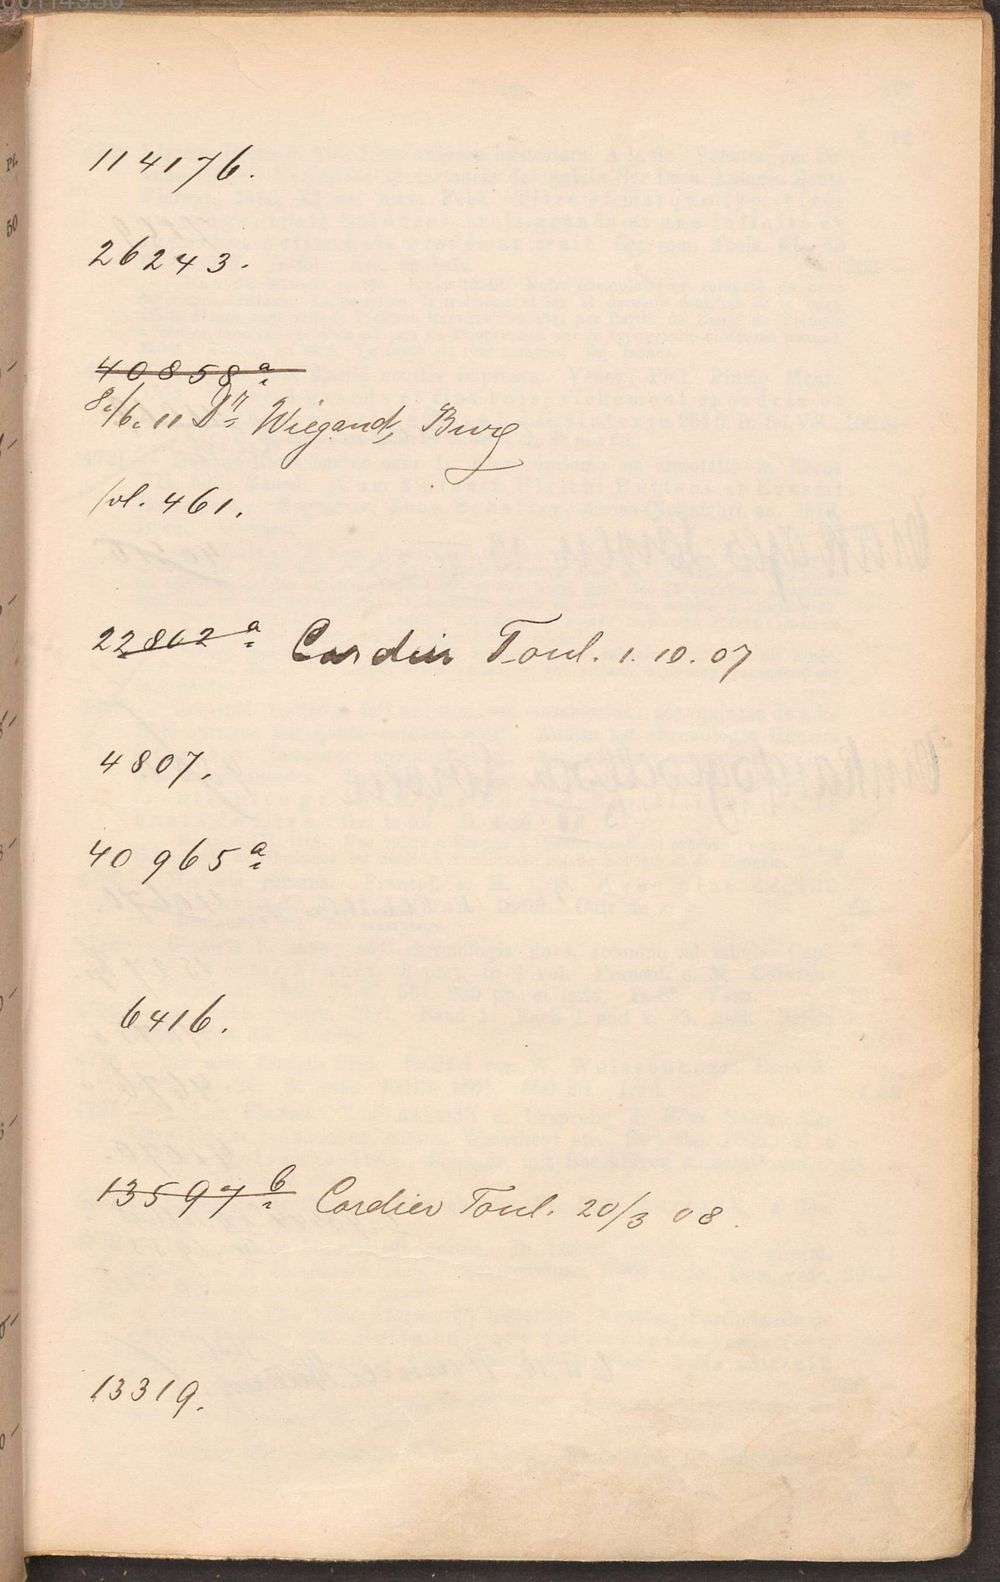 114176.
26243.
40858a
8./6. 11 Dr. Wiegand, Burg
fol. 461.
22862a Cordier Toul. 1. 10. 07
4807.
40965a
6416.
13597b Cordier Toul. 20/3 08.
13319.